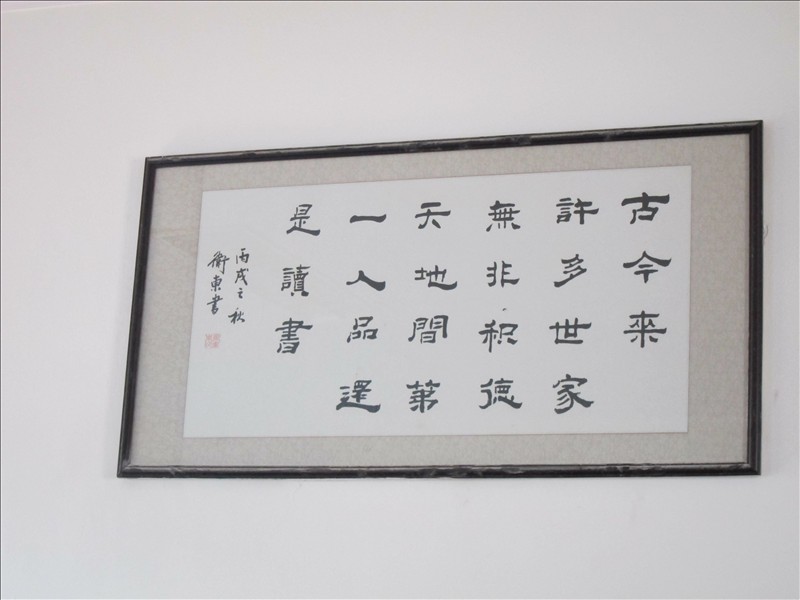 古今来
許多世家
無非积德
天地間第
一人品還
是讀書
丙戌之秋
衛東書